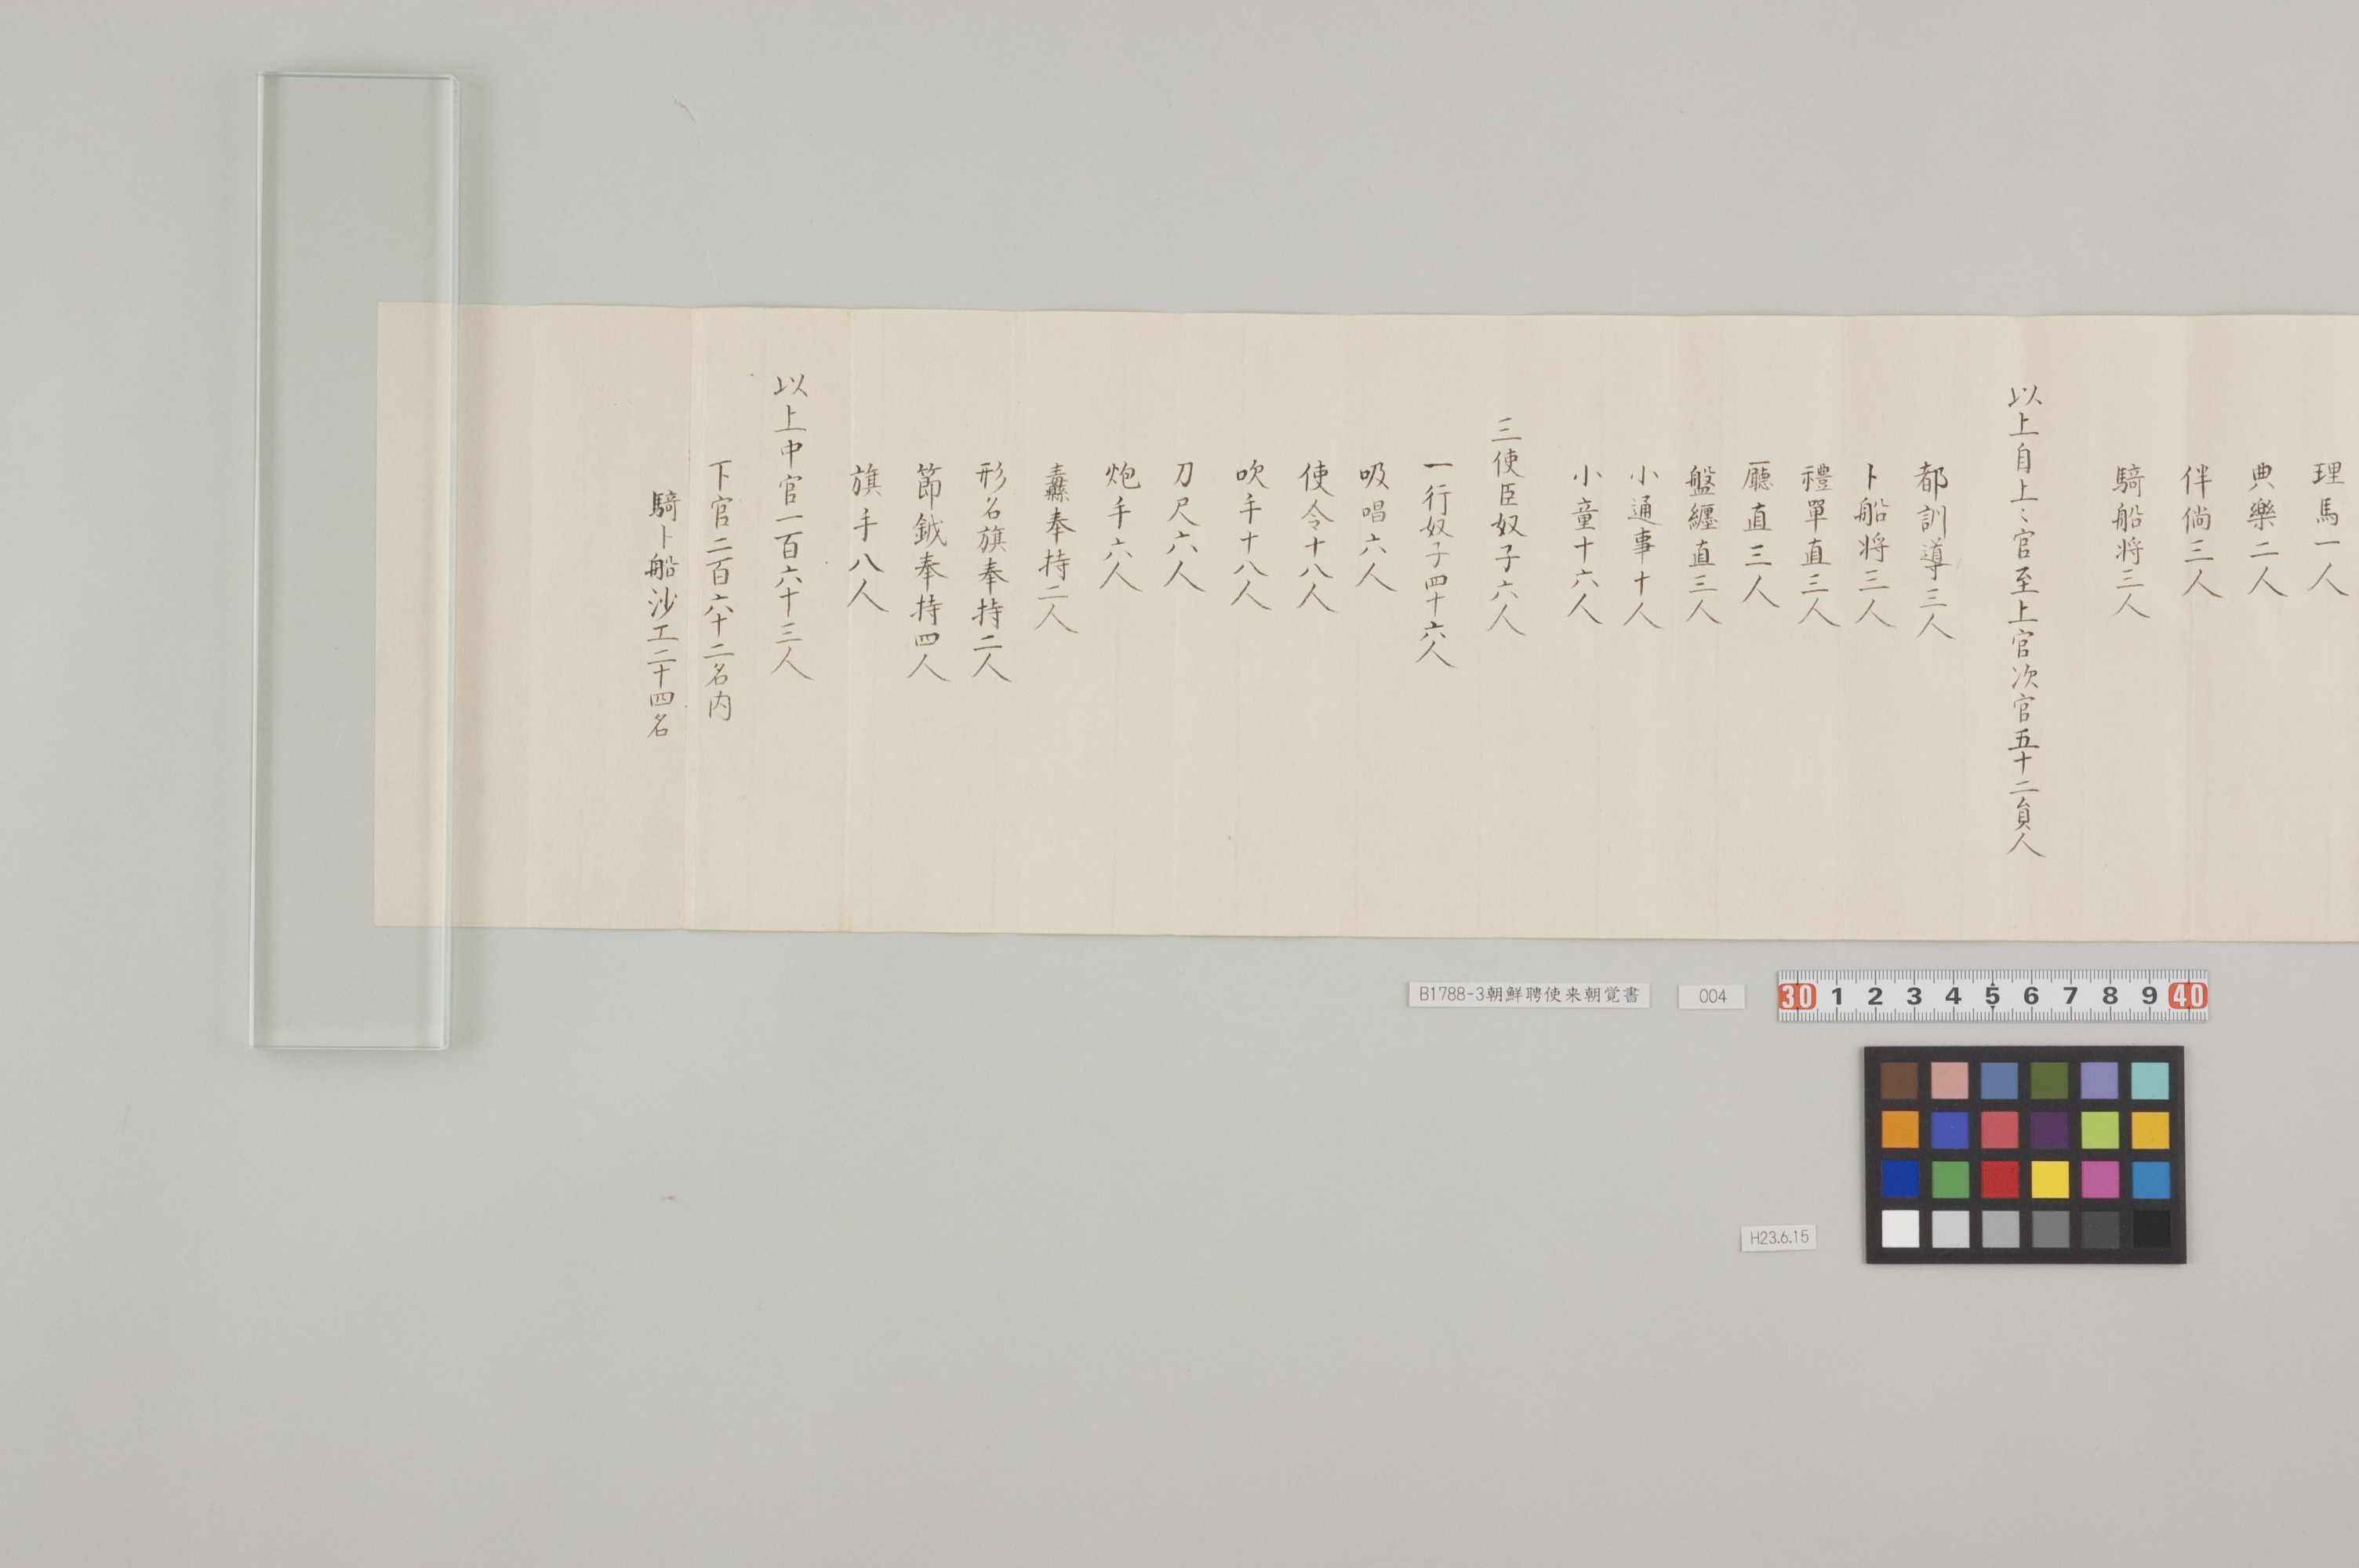 理馬一人
典樂二人
伴倘三人
騎船将三人
以上自上〻官至上官次官五十二員人
都訓導三人
卜船将三人
禮單直三人
廳直三人
盤纏直三人
小通事十人
小童十六人
三使臣奴子六人
一行奴子四十六人
吸唱六人
使令十八人
吹手十八人
刀尺六人
炮手六人
纛奉持二人
形名旗奉持二人
節鉞奉持四人
旗手八人
以上中官一百六十三人
下官二百六十二名内
騎卜船沙工二十四名
B1788-3朝鮮聘使来朝覚書
004
30 1 2 3 4 5 6 7 8 9 40
H23.6.15